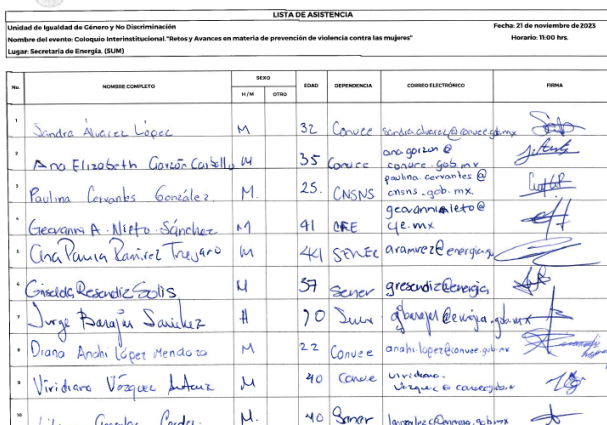 LISTA DE ASISTENCIA
Unidad de Igualdad de Género y No Discriminación Fecha: 21 de noviembre de 2023
Nombre del evento: Coloquio Interinstitucional "Retos y Avances en materia de prevención de violencia contra las mujeres" Horario: 11:00 hrs.
Lugar: Secretaría de Energía. (SUM)
No. NOMBRE COMPLETO SEXO EDAD DEPENDENCIA CORREO ELECTRÓNICO FIRMA
H/M OTRO
1 Sandra Álvarez López M 32 Conuee sandra.alvarez@conuee.gob.mx
2 Ana Elizabeth Garzón Carballo M 35 Conuee ana.garzon@
conuee.gob.mx
3 Paulina Cervantes González. M. 25. CNSNS paulina.cervantes@
cnsns.gob.mx.
4 Geovanni A. Nieto Sánchez M 41 CRE
5 Ana Paula Ramirez M SENER
6 Giselda Resendiz Solis M 37 Sener gresendiz@energia
7 Jorge Barajas Sanchez H 70
8 Diana Anahi López Mendoza M 22 Conuee anahi.lopez@conuee.gob.mx
9 Viridiana Vázquez M 40 Conuee viridiana.
10 M. 40 Sener